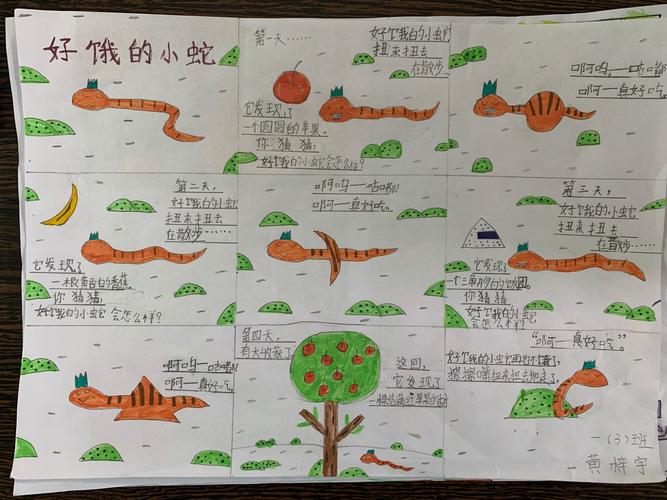 好饿的小蛇
第一天……
好饿的小蛇
扭来扭去
在散步…
它发现了
一个圆圆的苹果。
你猜猜,
好饿的小蛇会怎么样?
啊呜—咕嘟
啊—真好吃。
第二天,
好饿的小蛇
扭来扭去
在散步…
它发现了
一根黄色的香蕉。
你猜猜,
好饿的小蛇会怎么样?
啊呜—咕嘟!
啊—真好吃。
第三天,
好饿的小蛇
扭来扭去
在散步…
它发现了
一个三角形的饭团。
你猜猜,
好饿的小蛇
会怎么样?
啊呜—咕嘟!
啊—真好吃。
第四天,
有大收获了
这回,
它发现了
一棵结满
"啊—真好吃"。
好饿的小蛇再也不饿了,
扭来扭去
一(3)班
黄梓宇